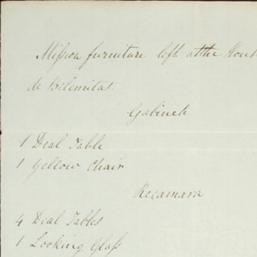 Mission furniture left at the Hous
de Belemitas.
Gabinete
1 Deal Table
1 Yellow Chair
Recamara
4 Deal Tables
1 Looking Glass